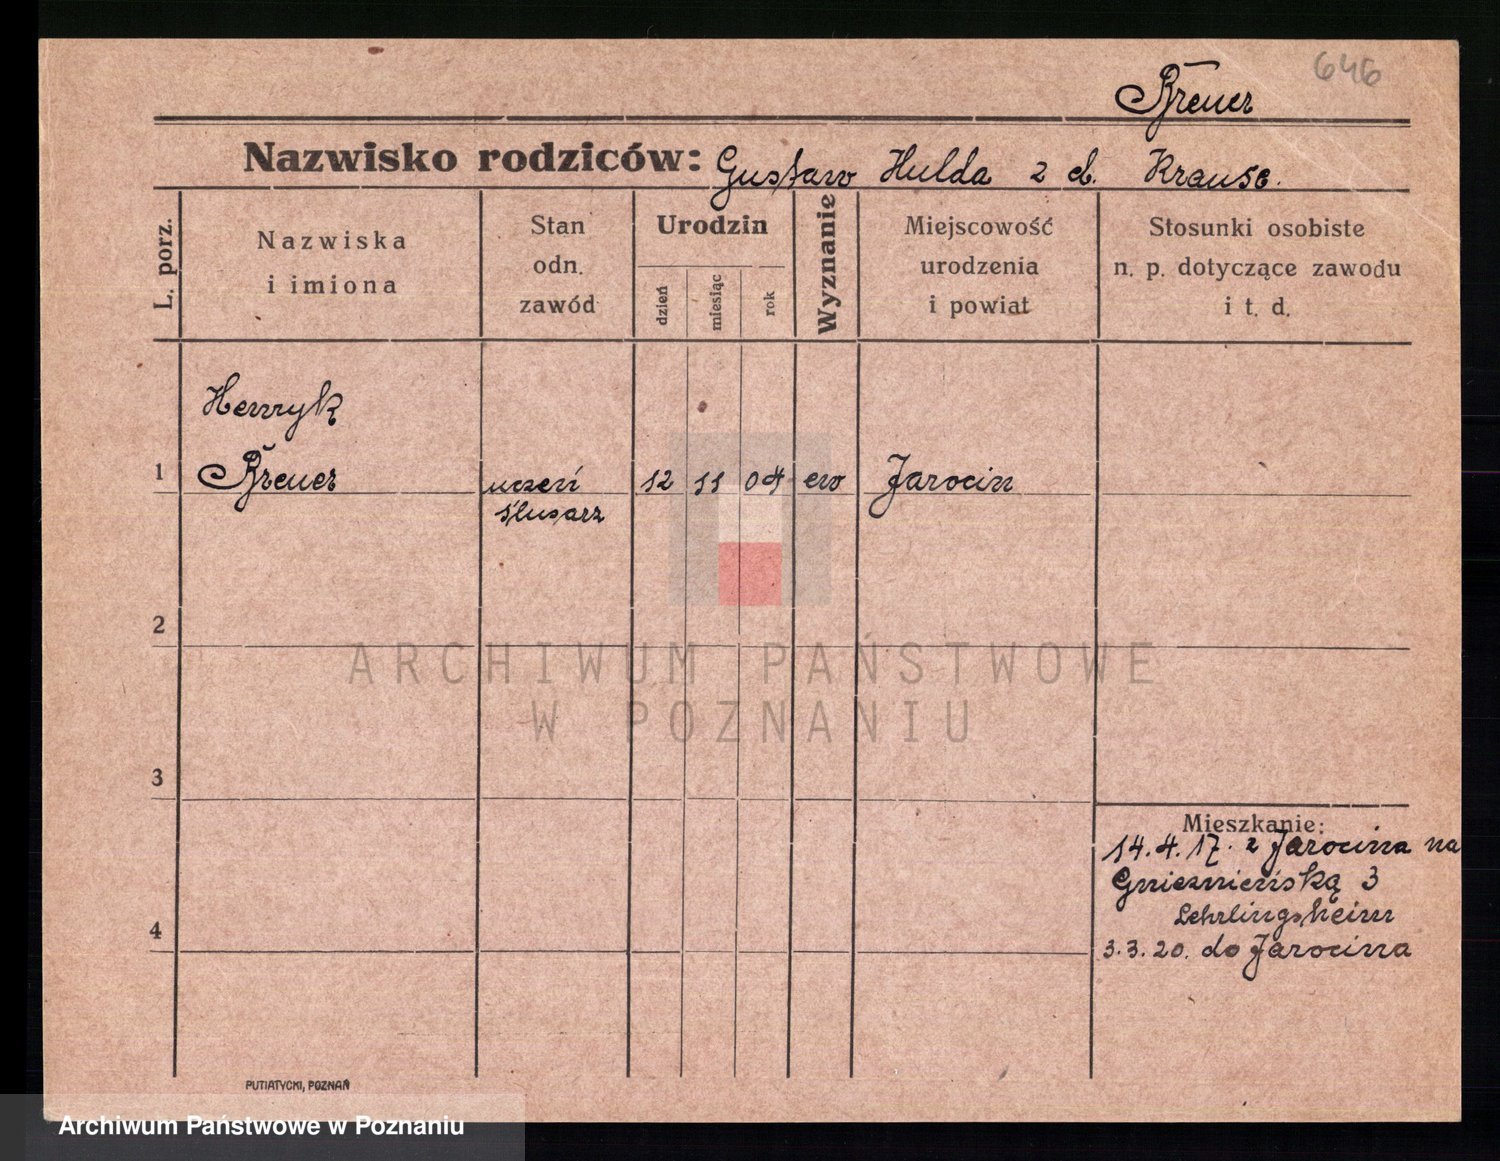 646
Breuer
Nazwisko rodziców: Gustaw Hulda z d. Krause.
L. porz.
Nazwiska
i imiona
Stan
odn.
zawód
Urodzin
dzień
miesiąc
rok
Wyznanie
Miejscowość
urodzenia
i powiat
Stosunki osobiste
n. p. dotyczące zawodu
i t. d.
Henryk
1 Breuer uczeń 12 11 04 ew Jarocin
ślusarz
2
ARCHIWUM PAŃSTWOWE
W POZNANIU
3
Mieszkanie:
14.4.17. z Jarocina na
Gnieźnieńską 3
Lehrlingsheim
4
3.3.20. do Jarocina
PUTIATYCKI, POZNAŃ
Archiwum Państwowe w Poznaniu